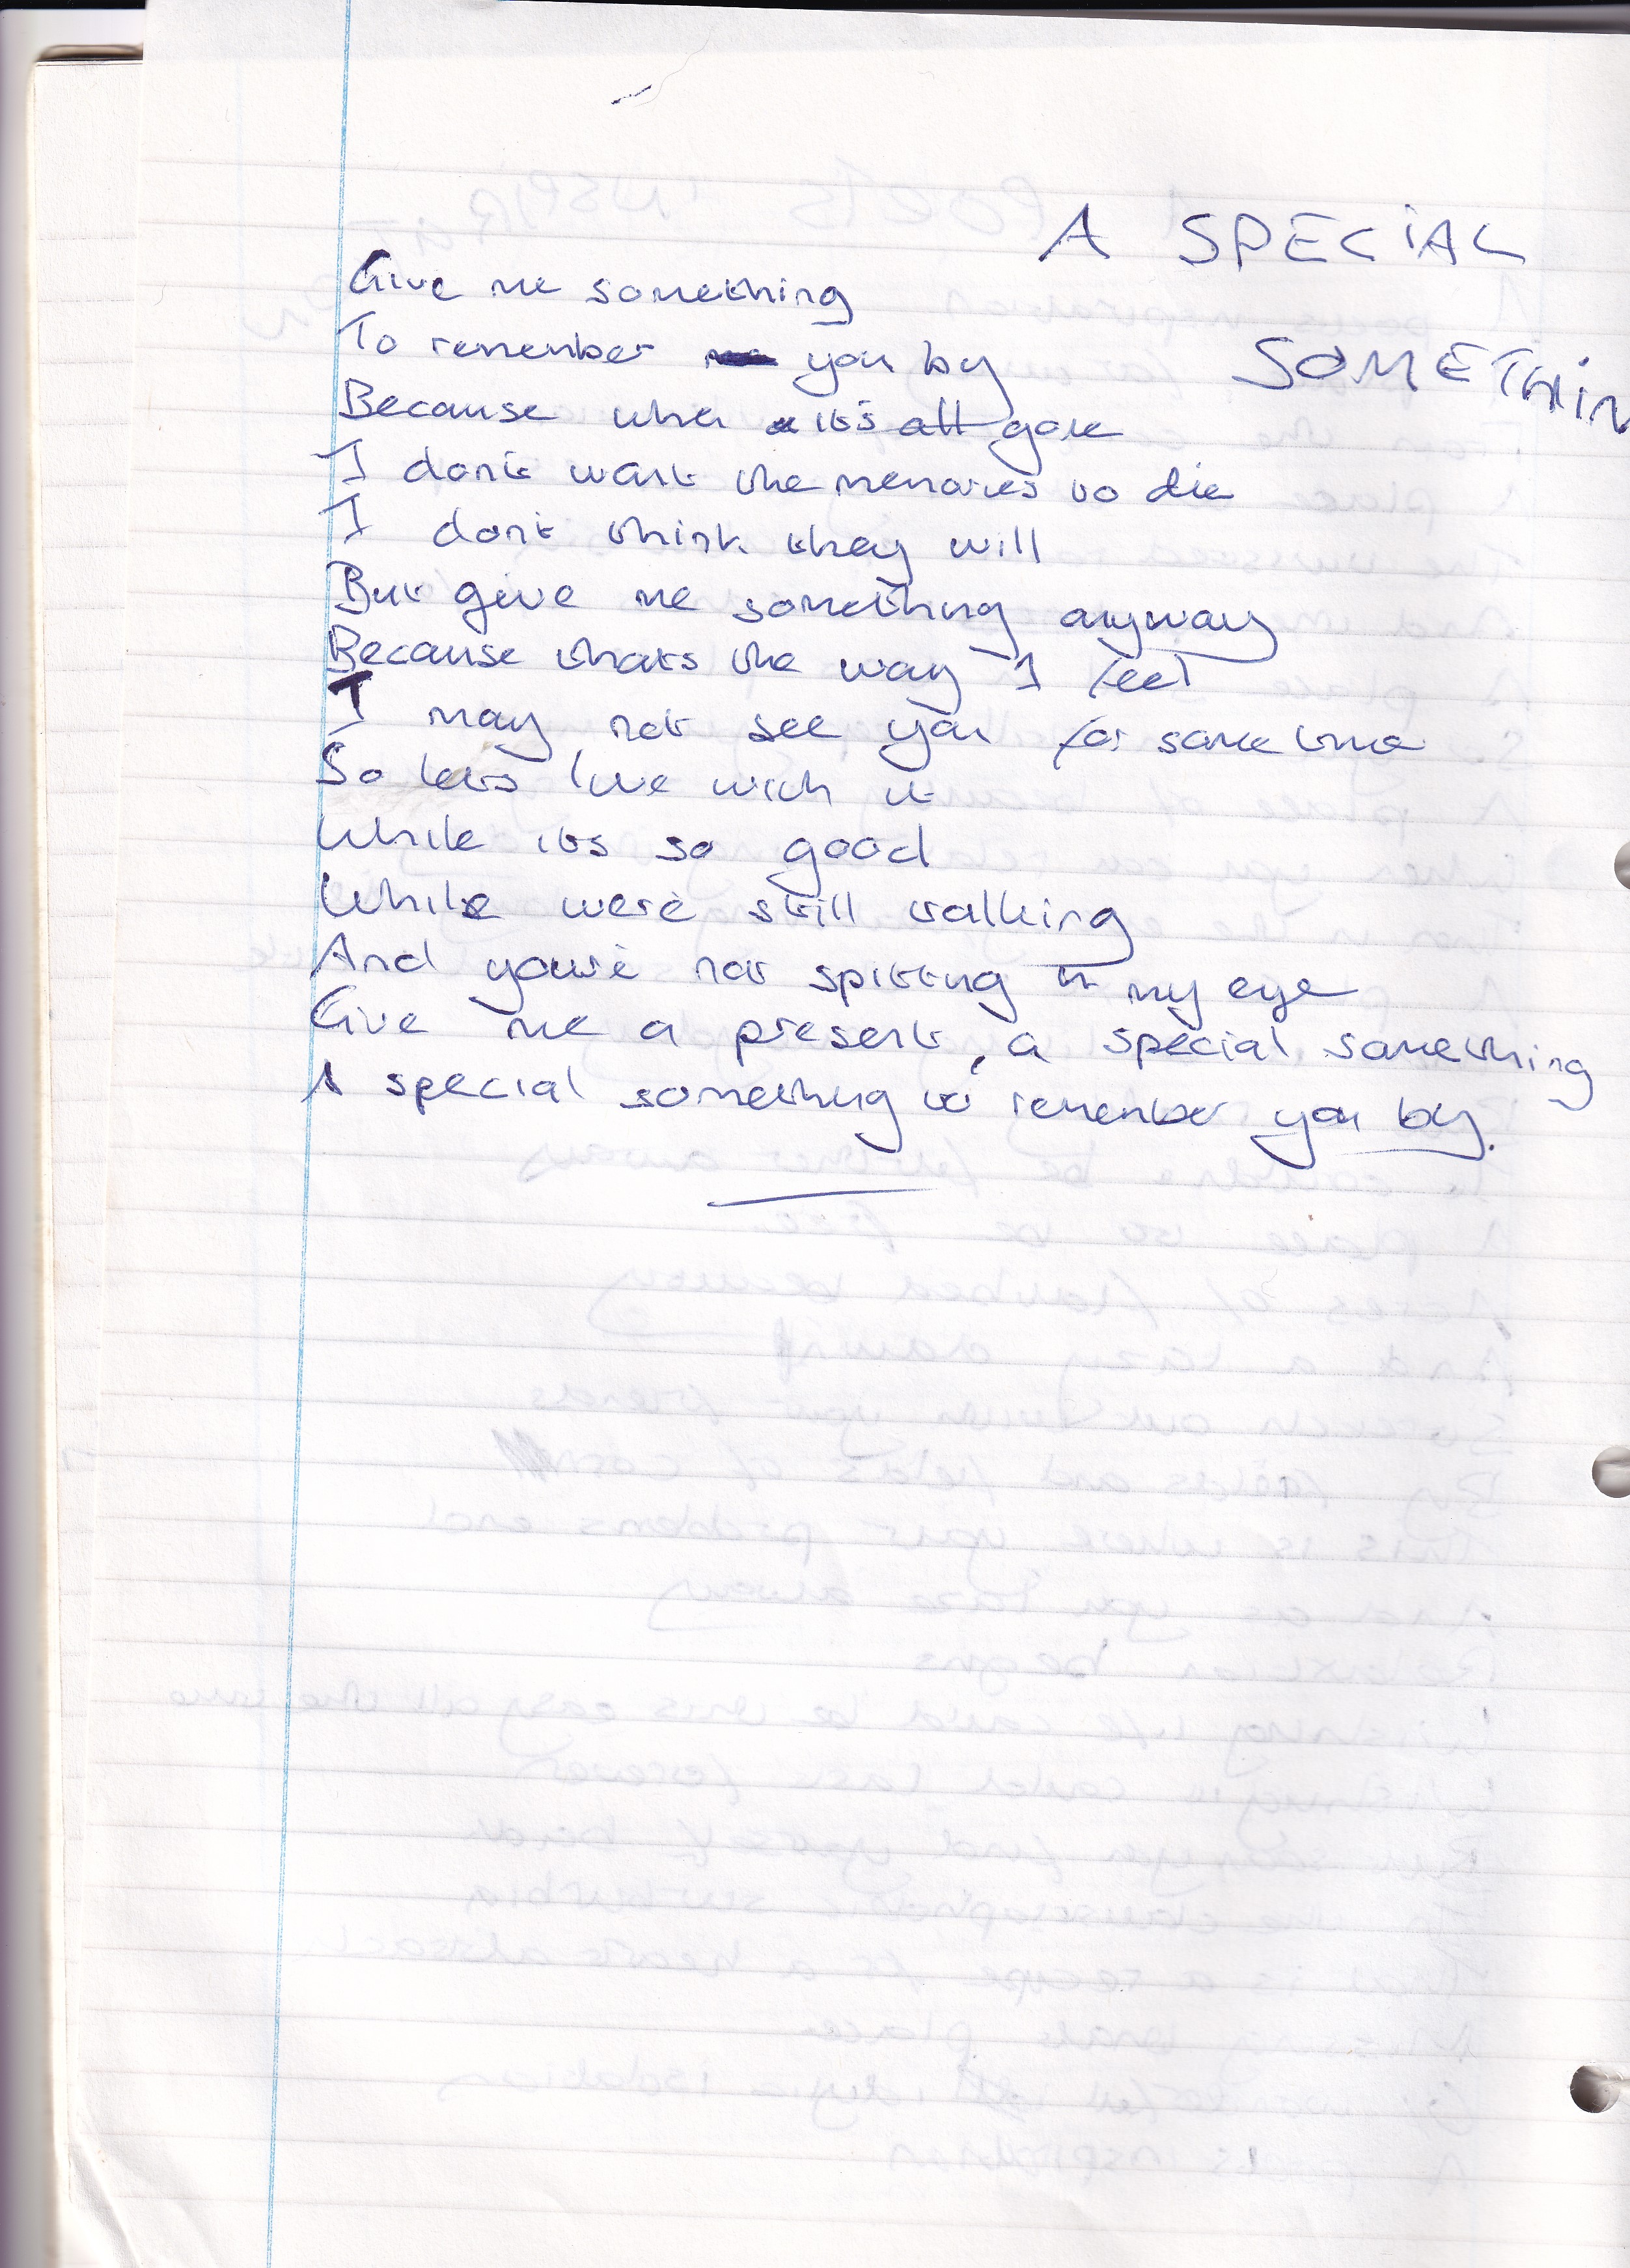 A SPECiAL
SOMETHiN
Give me something
To remember you by
Because when it's all gone
I don't want the memories to die
I don't think they will
But give me something anyway
Because thats the way I feel
I may not see you for some time
So lets live with it
While its so good
While we're still talking
And you're not spitting in my eye
Give me a present, a special something
A special something to remember you by.